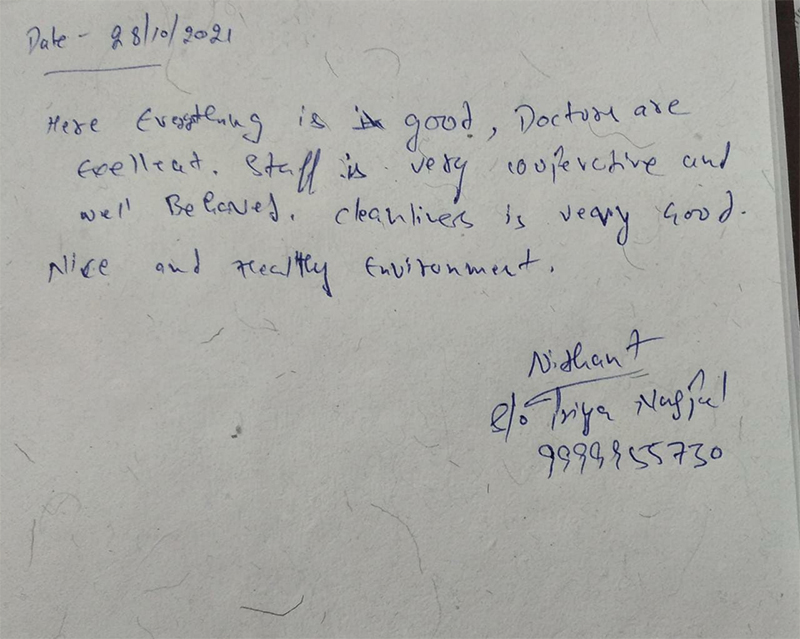 Date - 28/10/2021
Here Everything is is good, Doctors are
Excellent. Staff is very cooperative and
well Behaved. Cleanliness is very Good.
Nice and Healthy Environment.
Nishant
S/o Priya Nagpal